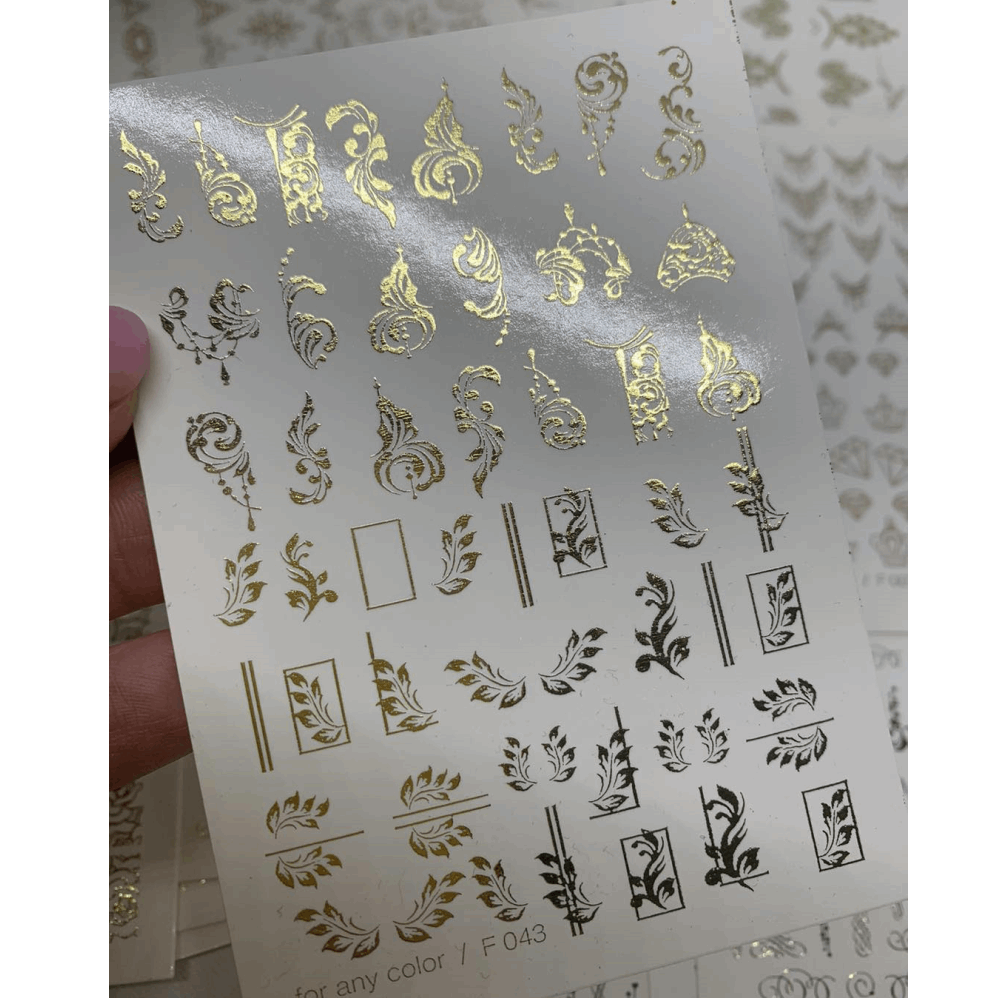 for any color / F 043